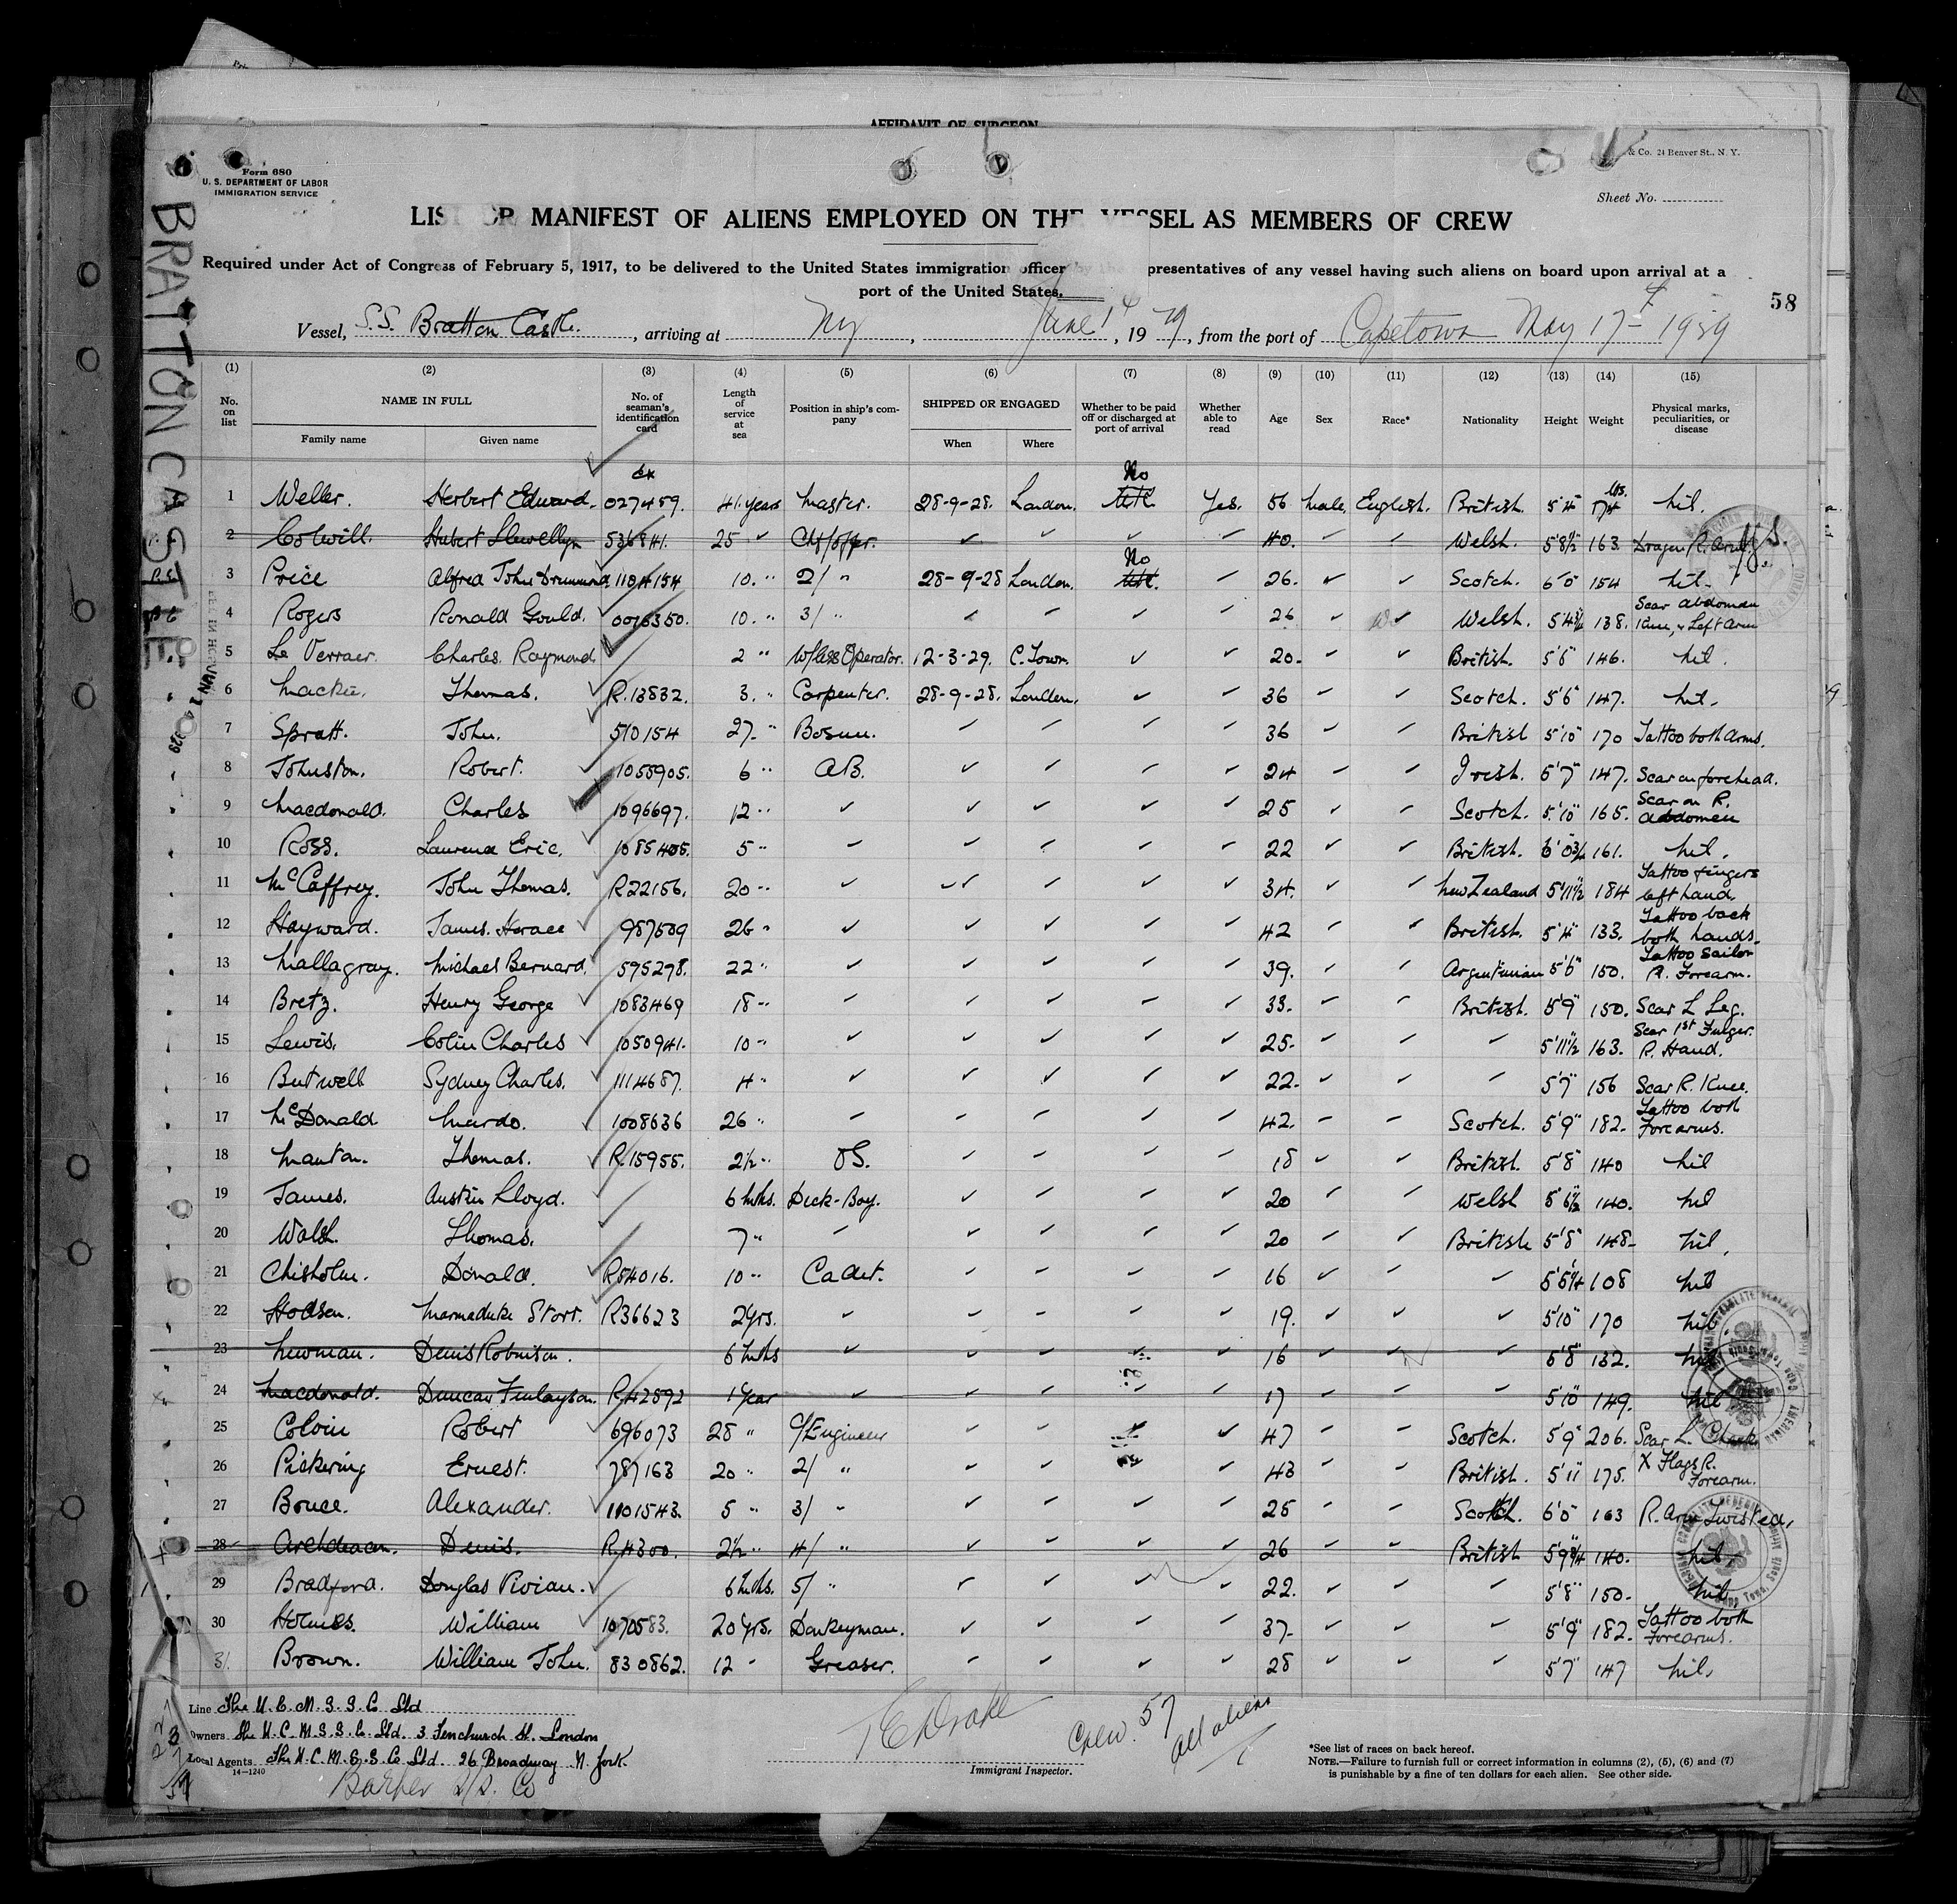 AFFIDAVIT OF SURGEON
Form 680
U. S. DEPARTMENT OF LABOR
IMMIGRATION SERVICE
& Co. 24 Beaver St., N. Y.
Sheet No.
LIST OR MANIFEST OF ALIENS EMPLOYED ON THE VESSEL AS MEMBERS OF CREW
Required under Act of Congress of February 5, 1917, to be delivered to the United States immigration officer by the representatives of any vessel having such aliens on board upon arrival at a
port of the United States.
58
BRATTON CASTLE
Vessel, S.S. Bratton Castle. , arriving at Ny , June 14 , 19 29 , from the port of Capetown May 17 - 1929
(1) (2) (3) (4) (5) (6) (7) (8) (9) (10) (11) (12) (13) (14) (15)
No. on list NAME IN FULL Family name Given name No. of seaman's identification card Length of service at sea Position in ship's company SHIPPED OR ENGAGED When Where Whether to be paid off or discharged at port of arrival Whether able to read Age Sex Race* Nationality Height Weight Physical marks, peculiarities, or disease
1 Weller. Herbert Edward. 027459. 41 years Master. 28-9-28. London. No Yes. 56 Male English. British. 5'4" 174 lbs. Nil.
2 Colwill. Hubert Llewellyn 536841. 25 " Chf/offr. ✓ ✓ ✓ ✓ 40. Welsh. 5'8½ 163. Dragon R. Arm.
3 Price Alfred John Drummond. 1104154 10. " 2/ " 28-9-28 London. No 26. Scotch. 6'0" 154 Nil.
4 Rogers Ronald Gould. 0016350. 10. " 3/ " 26 Welsh. 5'4¾ 138. Scar Abdomen Knee, & Left Arm
5 Le Verraer. Charles Raymond 2 " W/less Operator. 12-3-29. C. Town. 20. British. 5'6" 146. Nil.
6 Mackie. Thomas. R.13832. 3. " Carpenter. 28-9-28. London. 36 Scotch. 5'6" 147. Nil.
7 Spratt. John. 510154 27. " Bosun. 36 British 5'10" 170 Tattoo both Arms.
8 Johnston. Robert. 1055905. 6 " A.B. 24 Irish. 5'7" 147. Scar on forehead.
9 Macdonald. Charles 1096697. 12 " 25 Scotch. 5'10" 165. Scar on R. Abdomen
10 Ross. Laurence Eric. 1085405. 5 " 22 British. 6'0¾ 161. Nil.
11 McCaffrey. John Thomas. R22156. 20 " 34. New Zealand 5'11½ 184 Tattoo fingers left hand.
12 Hayward. James. Horace 987509 26 " 42 British. 5'4" 133. Tattoo back both hands.
13 Mallagray. Michael Bernard. 595298. 22 " 39. Argentinian 5'6" 150. Tattoo Sailor R. Forearm.
14 Bretz. Henry George 1083469 18 " 33. British. 5'9" 150. Scar L Leg.
15 Lewis. Colin Charles 1050941. 10 " 25. 5'11½ 163. Scar 1st Finger. R. Hand.
16 Butwell Sydney Charles. 1114687. 4 " 22. 5'7" 156 Scar R. Knee.
17 McDonald Murdo. 1008636 26 " 42. Scotch. 5'9" 182. Tattoo both Forearms.
18 Manton. Thomas. R.15955. 2½ " O.S. 18 British. 5'8" 140 Nil
19 James. Austin Lloyd. 6 Mths. Deck-Boy. 20 Welsh 5'6½ 140. Nil
20 Walsh. Thomas. 7 " 20 British 5'8" 148. Nil.
21 Chisholm. Donald. R54016. 10 " Cadet. 16 5'5¼ 108 Nil
22 Hodson. Marmaduke Storr. R36623 2 Yrs. 19. 5'10" 170 Nil.
23 Newman. Denis Robinson. 6 Mths 16 5'8" 132. Nil
24 Macdonald. Duncan Finlayson. R42592 1 Year 17 5'10" 149. Nil
25 Colvin Robert 696073 28 " C/Engineer 47 Scotch. 5'9" 206. Scar L. Cheek
26 Pickering Ernest. 787163 20 " 2/ " 43 British. 5'11" 175. X Flags R. Forearm.
27 Bruce. Alexander. 1101543. 5 " 3/ " 25 Scotch. 6'0" 163 R. Arm Twisted.
28 Archdeacon. Denis. R.4300. 2½ " 4/ " 26 British 5'9¾ 140. Nil.
29 Bradford. Douglas Vivian. 6 Mths. 5/ " 22. 5'8" 150. Nil.
30 Holmes. William 1070583. 20 Yrs. Donkeyman. 37. 5'9" 182. Tattoo both Forearms.
31. Brown. William John. 830862. 12 " Greaser. 28 5'7" 147 Nil.
Line The U. C. M. S. S. Co Ltd
Owners The U. C. M. S. S. Co. Ltd. 3 Fenchurch St. London
Local Agents The U. C. M. S. S. Co Ltd 26 Broadway N. York.
14-1240
Barber S/S. Co
Drake
Immigrant Inspector.
Crew. 57
all aliens
*See list of races on back hereof.
NOTE.—Failure to furnish full or correct information in columns (2), (5), (6) and (7)
is punishable by a fine of ten dollars for each alien. See other side.